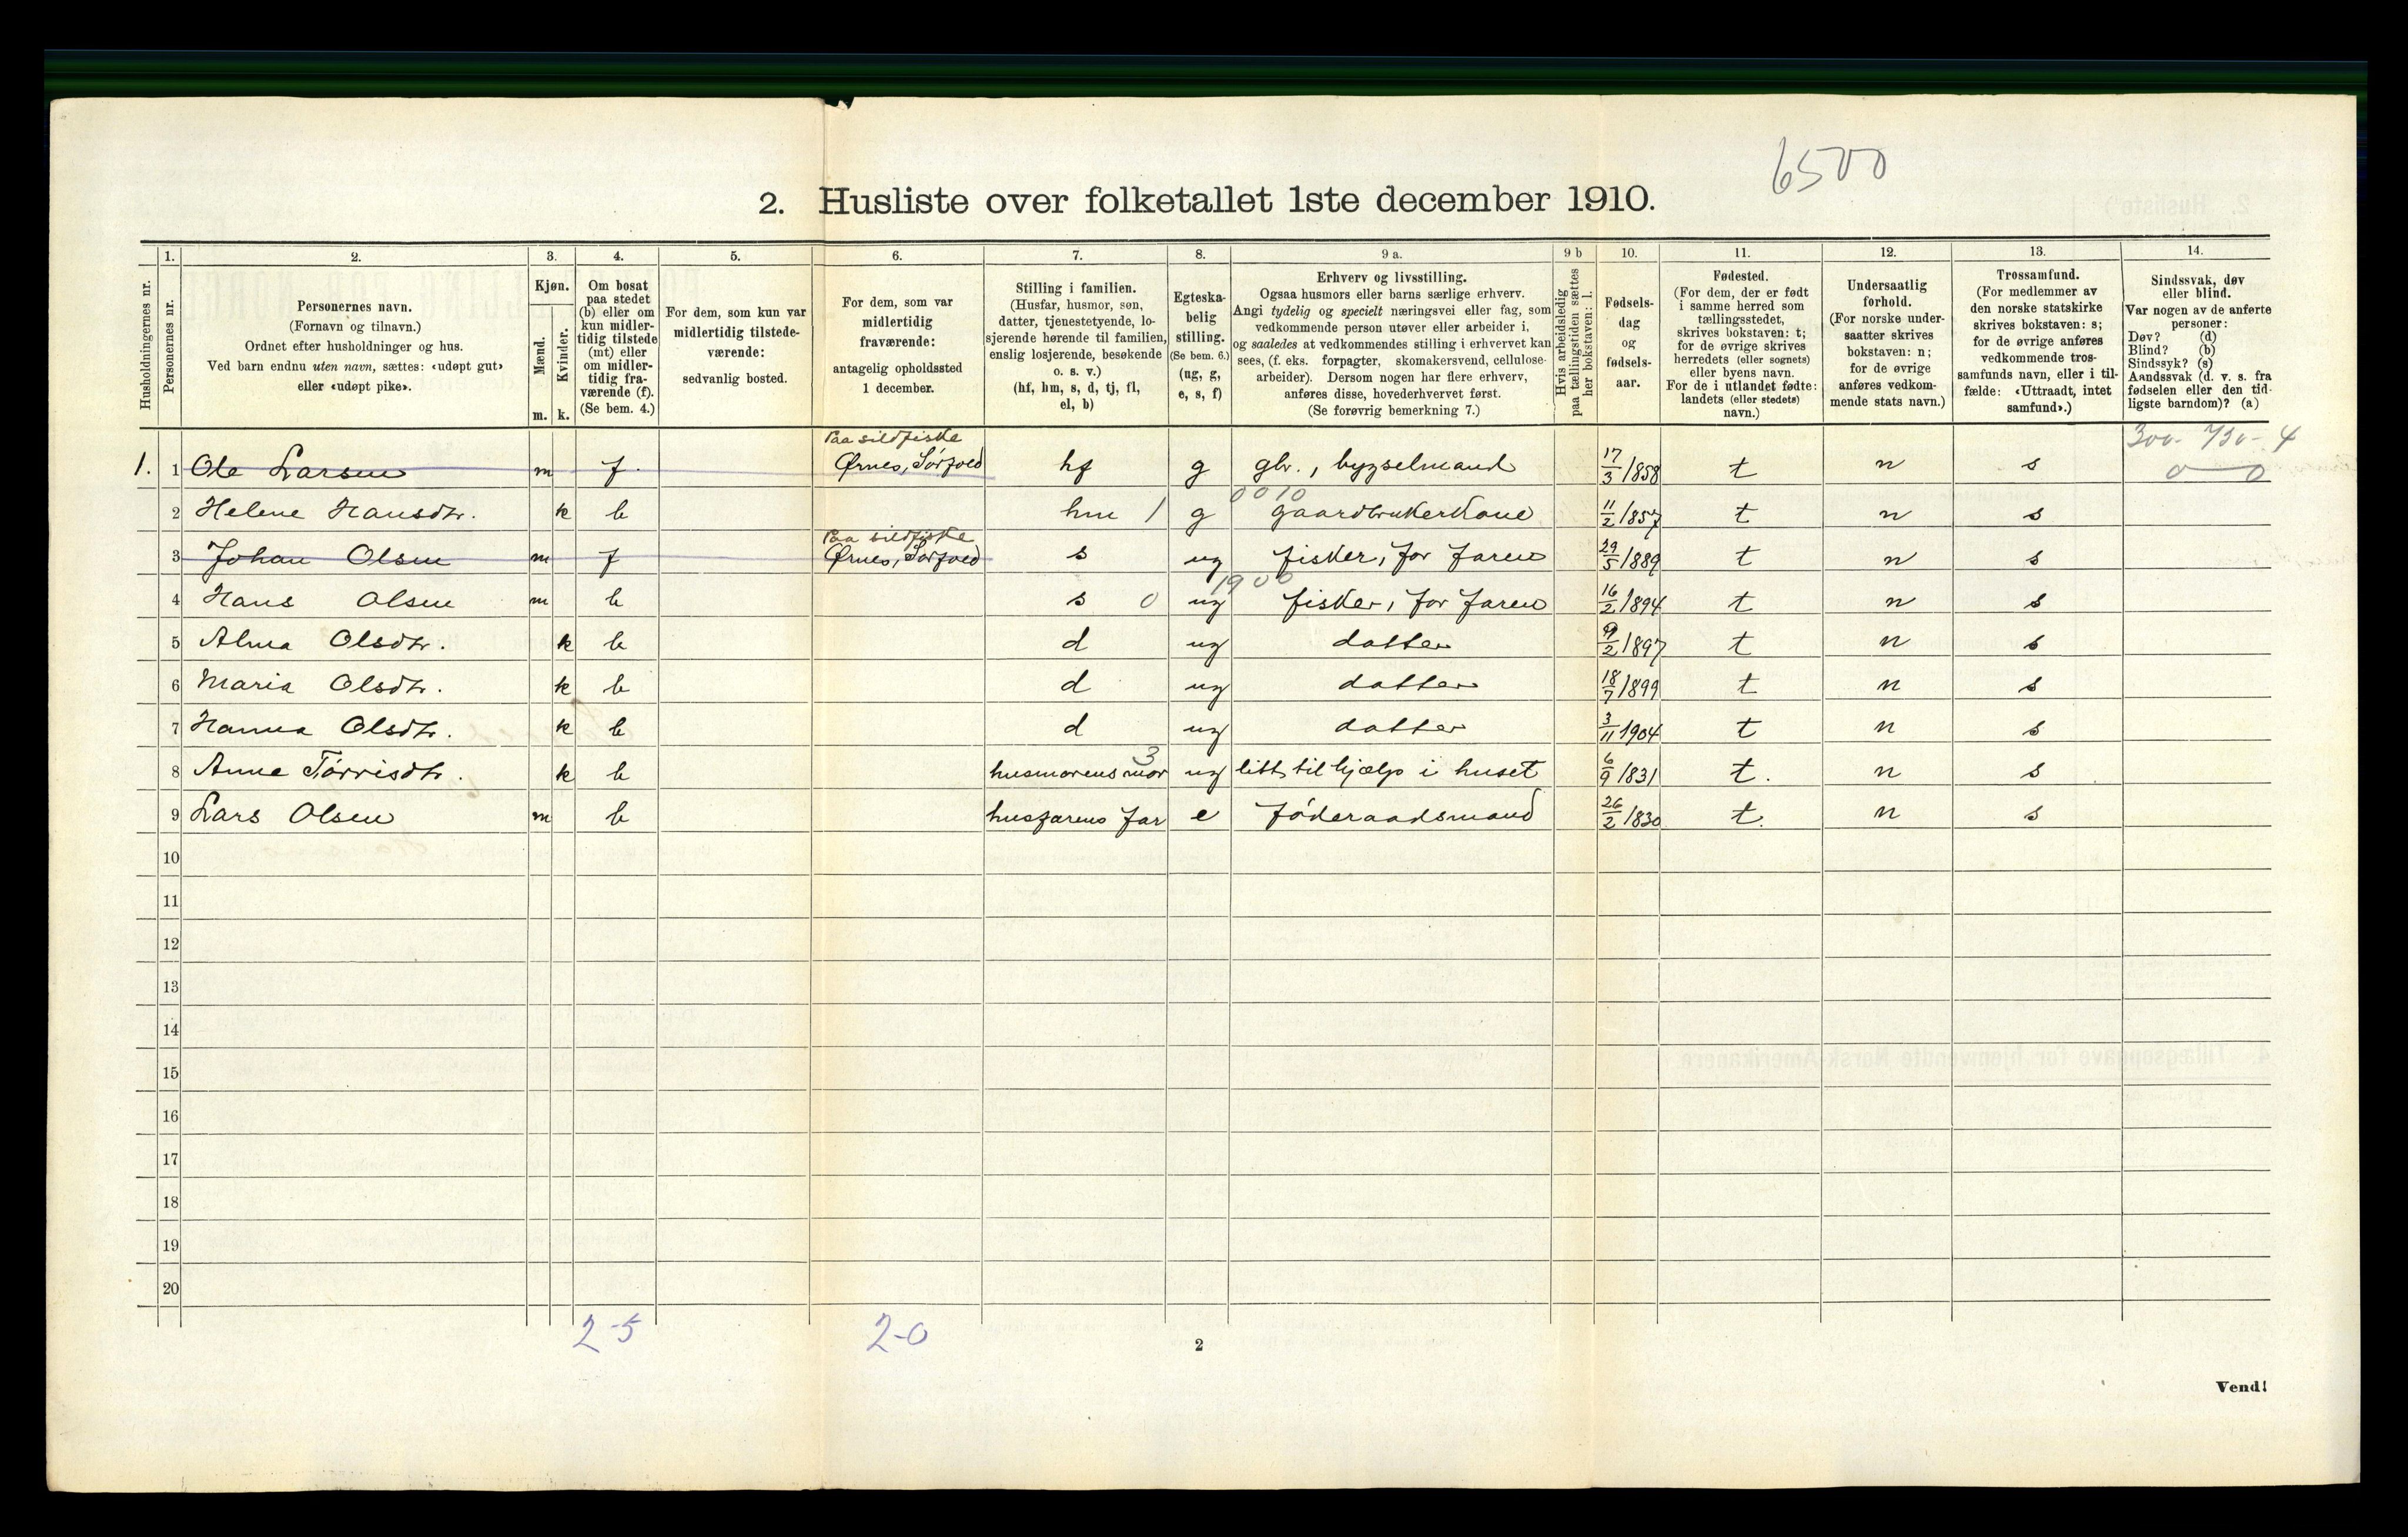 6500
2. Husliste over folketallet 1ste december 1910.
Husholdningernes nr.
1.
Personernes nr.
2.
Personernes navn.
(Fornavn og tilnavn.)
Ordnet efter husholdninger og hus.
Ved barn endnu uten navn, sættes: «udøpt gut»
eller «udøpt pike».
3.
Kjøn.
Mænd.
Kvinder.
m. k.
4.
Om bosat
paa stedet
(b) eller om
kun midler-
tidig tilstede
(mt) eller
om midler-
tidig fra-
værende (f).
(Se bem. 4.)
5.
For dem, som kun var
midlertidig tilstede-
værende:
sedvanlig bosted.
6.
For dem, som var
midlertidig
fraværende:
antagelig opholdssted
1 december.
7.
Stilling i familien.
(Husfar, husmor, søn,
datter, tjenestetyende, lo-
sjerende hørende til familien,
enslig losjerende, besøkende
o. s. v.)
(hf, hm, s, d, tj, fl,
el, b)
8.
Egteska-
belig
stilling.
(Se bem. 6.)
(ug, g,
e, s, f)
9 a.
Erhverv og livsstilling.
Ogsaa husmors eller barns særlige erhverv.
Angi tydelig og specielt næringsvei eller fag, som
vedkommende person utøver eller arbeider i,
og saaledes at vedkommendes stilling i erhvervet kan
sees, (f. eks. forpagter, skomakersvend, cellulose-
arbeider). Dersom nogen har flere erhverv,
anføres disse, hovederhvervet først.
(Se forøvrig bemerkning 7.)
9 b
Hvis arbeidsledig
paa tællingstiden sættes
her bokstaven: l.
10.
Fødsels-
dag
og
fødsels-
aar.
11.
Fødested.
(For dem, der er født
i samme herred som
tællingsstedet,
skrives bokstaven: t;
for de øvrige skrives
herredets (eller sognets)
eller byens navn.
For de i utlandet fødte:
landets (eller stedets)
navn.)
12.
Undersaatlig
forhold.
(For norske under-
saatter skrives
bokstaven: n;
for de øvrige
anføres vedkom-
mende stats navn.)
13.
Trossamfund.
(For medlemmer av
den norske statskirke
skrives bokstaven: s;
for de øvrige anføres
vedkommende tros-
samfunds navn, eller i til-
fælde: «Uttraadt, intet
samfund».)
14.
Sindssvak, døv
eller blind.
Var nogen av de anførte
personer:
Døv? (d)
Blind? (b)
Sindssyk? (s)
Aandssvak (d. v. s. fra
fødselen eller den tid-
ligste barndom)? (a)
300- 730- 4
0 0
Paa sildfiske
1. 1 Ole Larsen m f. Ørnes, Sørfold hf g gbr., bygselmand 17/3 1858 t n s
0010
2 Helene Hansdtr. k b hm 1 g gaardbrukerkone 11/2 1857 t n s
Paa sildfiske
3 Johan Olsen m f Ørnes, Sørfold s ug fisker, for faren 29/5 1889 t n s
1900
4 Hans Olsen m b s 0 ug fisker, for faren 16/2 1894 t n s
5 Alma Olsdtr. k b d ug datter 9/2 1897 t n s
6 Maria Olsdtr. k b d ug datter 18/7 1899 t n s
7 Hanna Olsdtr. k b d ug datter 3/11 1904 t n s
3
8 Anne Tørrisdtr. k b husmorens mor ug litt til hjælp i huset 6/9 1831 t. n s
9 Lars Olsen m b husfarens far e føderaadsmand 26/2 1830 t. n s
10
11
12
13
14
15
16
17
18
19
20
2-5 2-0
2
Vend!